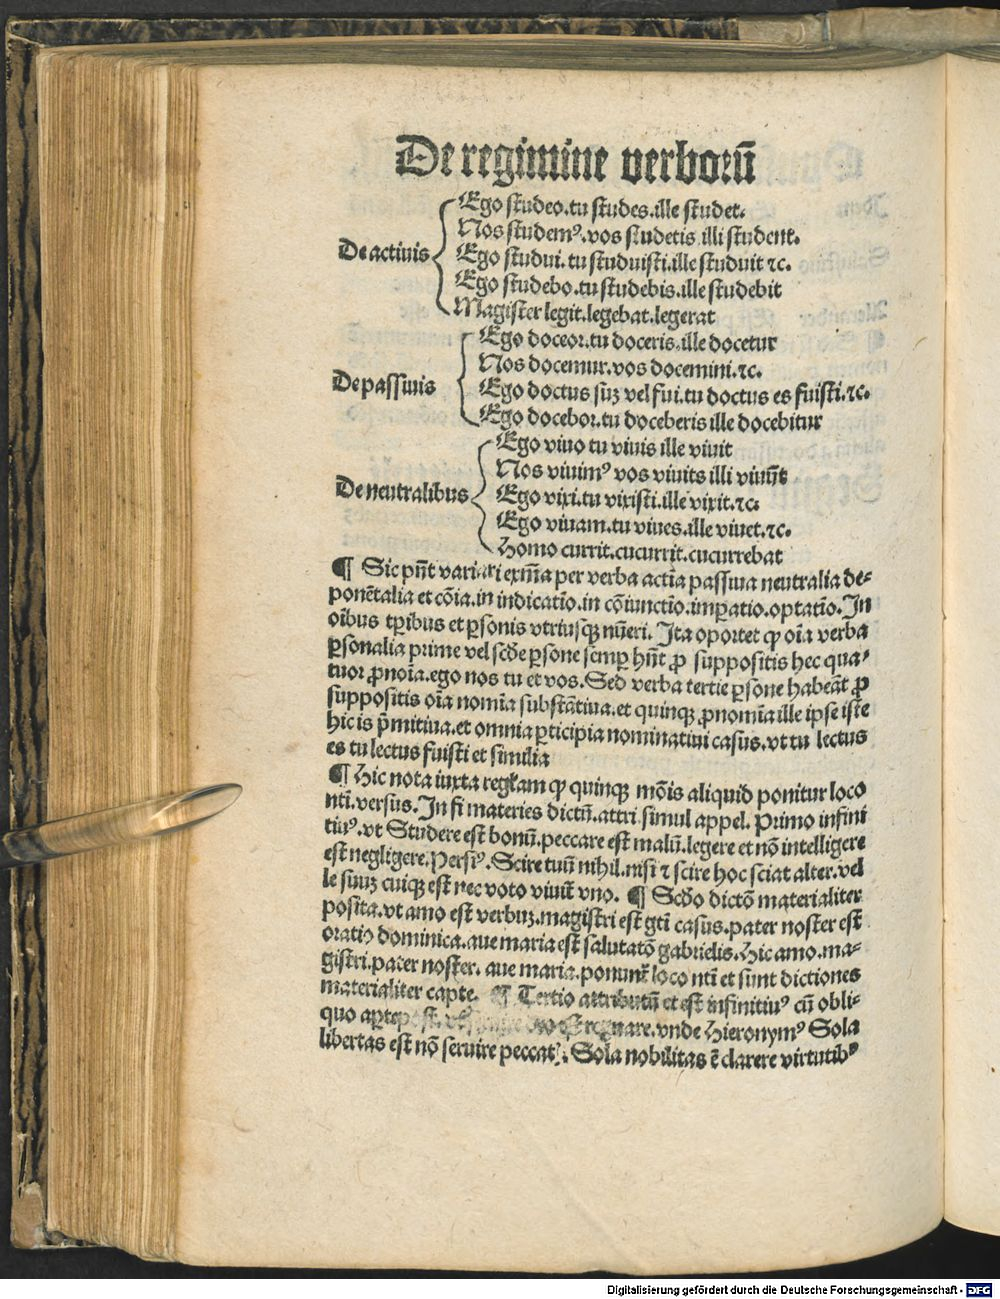 De regimine verborū
Ego studeo.tu studes.ille studet.
Nos studemꝰ.vos studetis illi student.
De activis
Ego studui.tu studuisti.ille studuit ⁊c.
Ego studebo.tu studebis.ille studebit
Magister legit.legebat.legerat
Ego doceor.tu doceris.ille docetur
Nos docemur.vos docemini.⁊c.
De passivis
Ego doctus suꝫ vel fui.tu doctus es fuisti.⁊c.
Ego docebor.tu doceberis ille docebitur
Ego vivo tu vivis ille vivit
Nos vivimꝰ vos vivits illi vivūt
De neutralibus
Ego vixi.tu vixisti.ille vixit.⁊c.
Ego vivam.tu vives.ille vivet.⁊c.
Homo currit.cucurrit.cucurrebat
¶ Sic pn̄t variari exm̄a per verba actīa passiva neutralia de⸗
ponētalia et cōia.in indicatīo.in cōiunctīo.imꝑatio.optatīo.In
oībus tꝑibus et ꝑsonis vtriusqꝫ nūeri. Ita oportet ꝙ oīa verba
ꝑsonalia prime vel scd̄e ꝑsone semꝑ hn̄t ꝓ suppositis hec qua⸗
tuor ꝓnoīa.ego nos tu et vos.Sed verba tertie ꝑsone habeāt ꝓ
suppositis oīa nomīa substātiva.et quinqꝫ ꝓnomīa ille ipse iste
hic is p̄mitiva.et omnia ꝑticipia nominativi casus.vt tu lectus
es tu lectus fuisti et similia
¶ Hic nota iuxta regłam ꝙ quinqꝫ mōis aliquid ponitur loco
nti.versus.In fi materies dictū.attri simul appel. Primo infini
tivꝰ.vt Studere est bonū.peccare est malū.legere et nō intelligere
est negligere.Persiꝰ.Scire tuū nihil.nisi ⁊ scire hoc sciat alter.vel
le suuꝫ cuiqꝫ est nec voto vivit̄ vno. ¶ Scd̄o dictō materialiter
posita.vt amo est verbuꝫ.magistri est gt̄i casus.pater noster est
oratio dominica.ave maria est salutatō gabrielis.Hic amo.ma⸗
gistri.pater noster. ave maria.ponunt̄ loco nt̄i et sunt dictiones
materialiter capte. ¶ Tertio attributū et est infinitivꝰ cū obli⸗
quo regnare.vnde Hieronymꝰ Sola
libertas est nō servire peccat. Sola nobilitas ē clarere virtutibꝰ
Digitalisierung gefördert durch die Deutsche Forschungsgemeinschaft - DFG